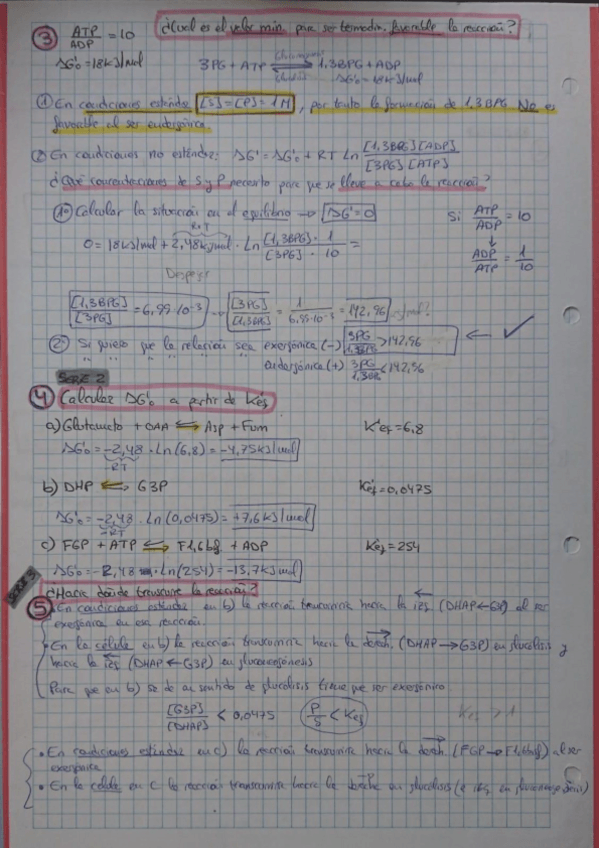 ③ ATP/ADP = 10 ¿Cual es el valor min. para ser termodin. favorable la reacción?
ΔG'o = 18 kJ/mol 3PG + ATP ⇌ 1,3BPG + ADP
ΔG'o = 18 kJ/mol
① En condiciones estándar [S] = [P] = 1M, por tanto la formación de 1,3BPG No es
favorable al ser endergónica.
② En condiciones no estándar: ΔG' = ΔG'o + RT Ln [1,3BPG][ADP]/[3PG][ATP]
¿Qué concentraciones de S y P necesito para que se lleve a cabo la reacción?
1º Calcular la situación en el equilibrio → ΔG' = 0 Si ATP/ADP = 10
R·T
0 = 18 kJ/mol + 2,48 kJ/mol · Ln [1,3BPG] · 1/[3PG] · 10 = ADP/ATP = 1/10
Despejar
[1,3BPG]/[3PG] = 6,99·10⁻³ [3PG]/[1,3BPG] = 1/6,99·10⁻³ = 142,96
2º Si quiero que la relación sea exergónica (-) 3PG/1,3BPG > 142,96 ← ✓
" " " " " Endergónica (+) 3PG/1,3BPG < 142,96
SERIE 2
④ Calcular ΔG'o a partir de K'eq
a) Glutamato + OAA ⇌ Asp + Fum K'eq = 6,8
ΔG'o = -2,48 · Ln(6,8) = -4,75 kJ/mol
-RT
b) DHP ⇌ G3P K'eq = 0,0475
ΔG'o = -2,48 · Ln(0,0475) = +7,6 kJ/mol
-RT
c) FGP + ATP ⇌ F1,6bif + ADP K'eq = 254
ΔG'o = -2,48 · Ln(254) = -13,7 kJ/mol
SERIE 3
¿Hacia dónde transcurre la reacción?
⑤ • En condiciones estándar en b) la reacción transcurriría hacia la ←izq (DHAP ← G3P) al ser
exergónica en esa reacción.
• En la célula en b) la reacción transcurriría hacia la derch. (DHAP → G3P) en glucolisis y
hacia la izq (DHAP ← G3P) en gluconeogénesis
Para que en b) se de en sentido de glucolisis tiene que ser exergónico.
[G3P]/[DHAP] < 0,0475 P/S < Keq Keq > 1
• En condiciones estándar en c) la reacción transcurriría hacia la derch (FGP → F1,6bif) al ser
exergónica
• En la célula en c la reacción transcurriría hacia la derecha en glucolisis (e izq en gluconeogénesis)